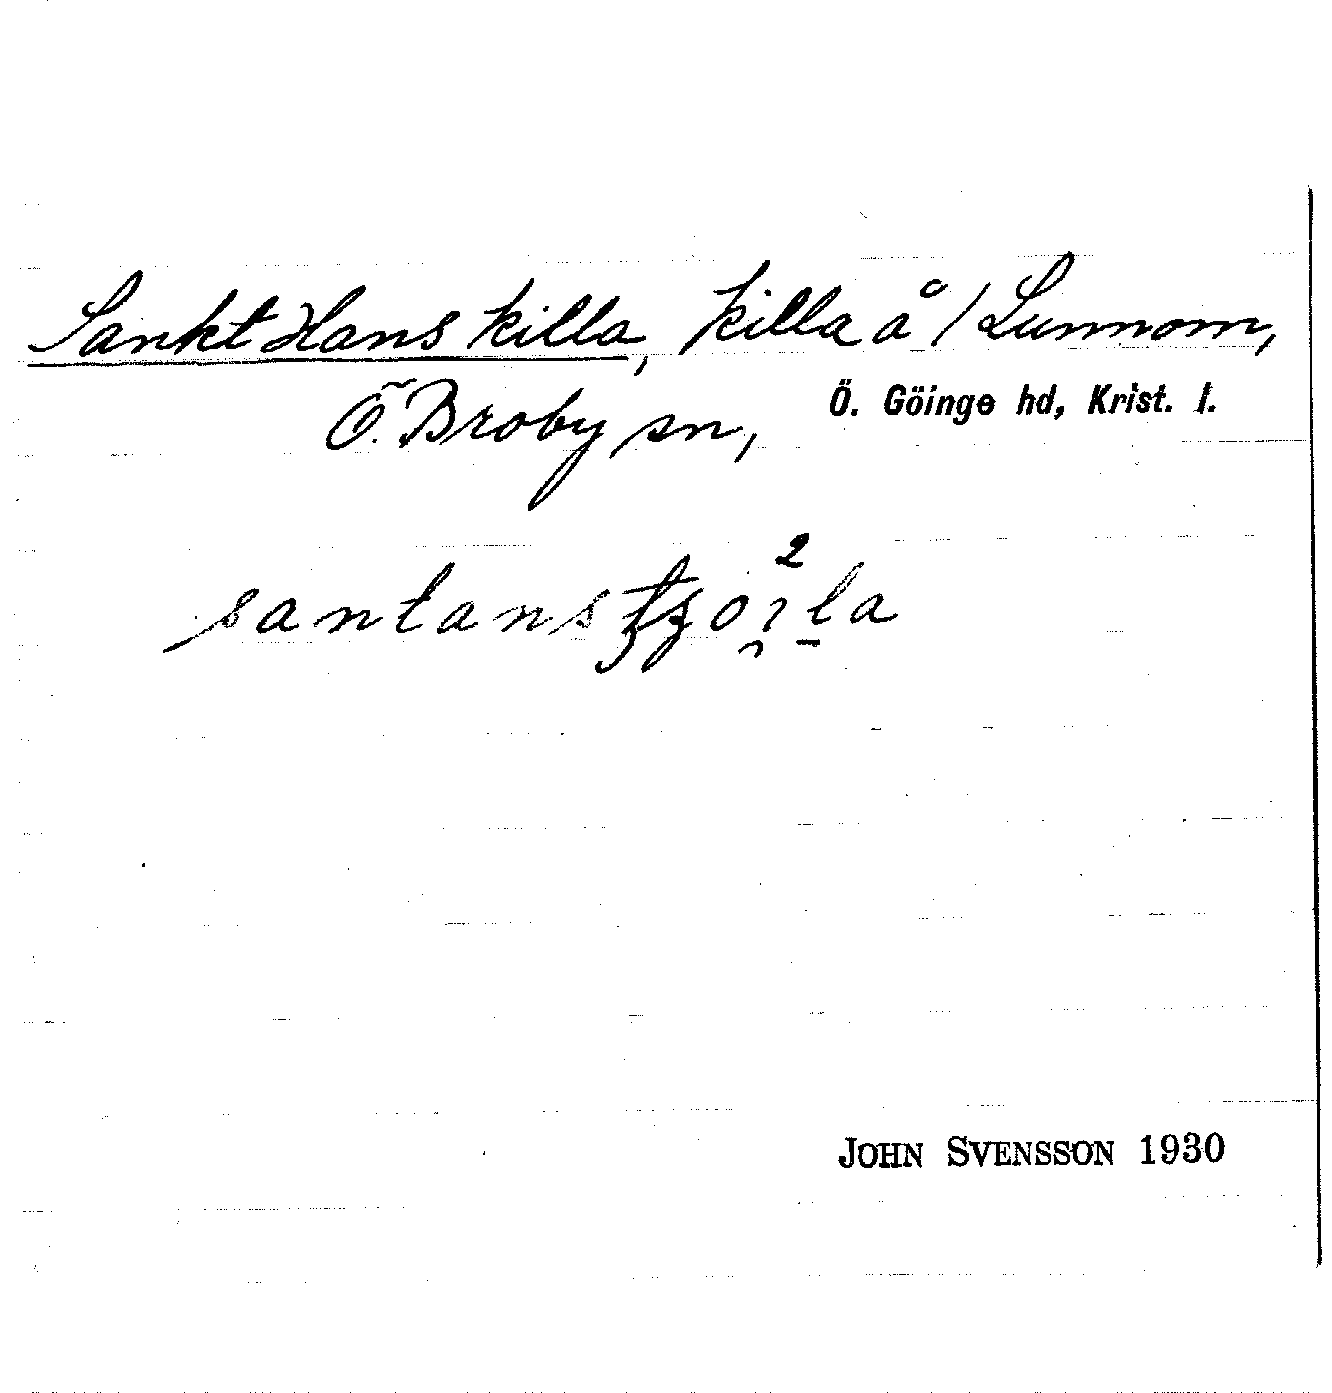 Sankt Hans killa, killa å /Lunnom,
Ö. Broby sn, Ö. Göinge hd, Krist. l.
JOHN SVENSSON 1930